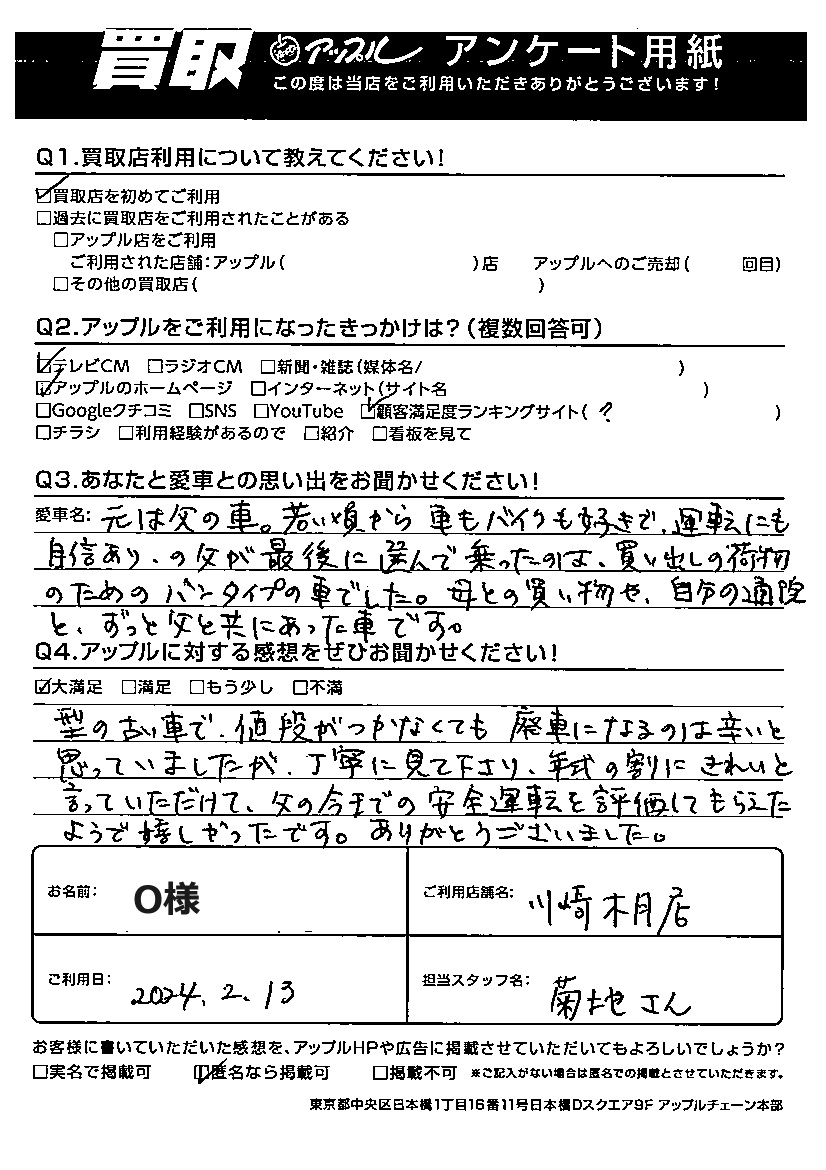 買取 アップル アンケート用紙
この度は当店をご利用いただきありがとうございます!
Q1.買取店利用について教えてください!
☑買取店を初めてご利用
□過去に買取店をご利用されたことがある
□アップル店をご利用
ご利用された店舗:アップル( )店 アップルへのご売却( 回目)
□その他の買取店( )
Q2.アップルをご利用になったきっかけは?(複数回答可)
☑テレビCM □ラジオCM □新聞・雑誌(媒体名/ )
☑アップルのホームページ □インターネット(サイト名 )
□Googleクチコミ □SNS □YouTube ☑顧客満足度ランキングサイト( ? )
□チラシ □利用経験があるので □紹介 □看板を見て
Q3.あなたと愛車との思い出をお聞かせください!
愛車名: 元は父の車。若い頃から車もバイクも好きで、運転にも
自信あり、の父が最後に選んで乗ったのは、買い出しの荷物
のためのバンタイプの車でした。母との買い物や、自分の通院
と、ずっと父と共にあった車です。
Q4.アップルに対する感想をぜひお聞かせください!
☑大満足 □満足 □もう少し □不満
型の古い車で、値段がつかなくても廃車になるのは辛いと
思っていましたが、丁寧に見て下さり、年式の割にきれいと
言っていただけて、父の今までの安全運転を評価してもらえた
ようで嬉しかったです。ありがとうございました。
お名前: O様 ご利用店舗名: 川崎木月店
ご利用日: 2024.2.13 担当スタッフ名: 菊地さん
お客様に書いていただいた感想を、アップルHPや広告に掲載させていただいてもよろしいでしょうか?
□実名で掲載可 ☑匿名なら掲載可 □掲載不可 ※ご記入がない場合は匿名での掲載とさせていただきます。
東京都中央区日本橋1丁目16番11号日本橋Dスクエア9F アップルチェーン本部